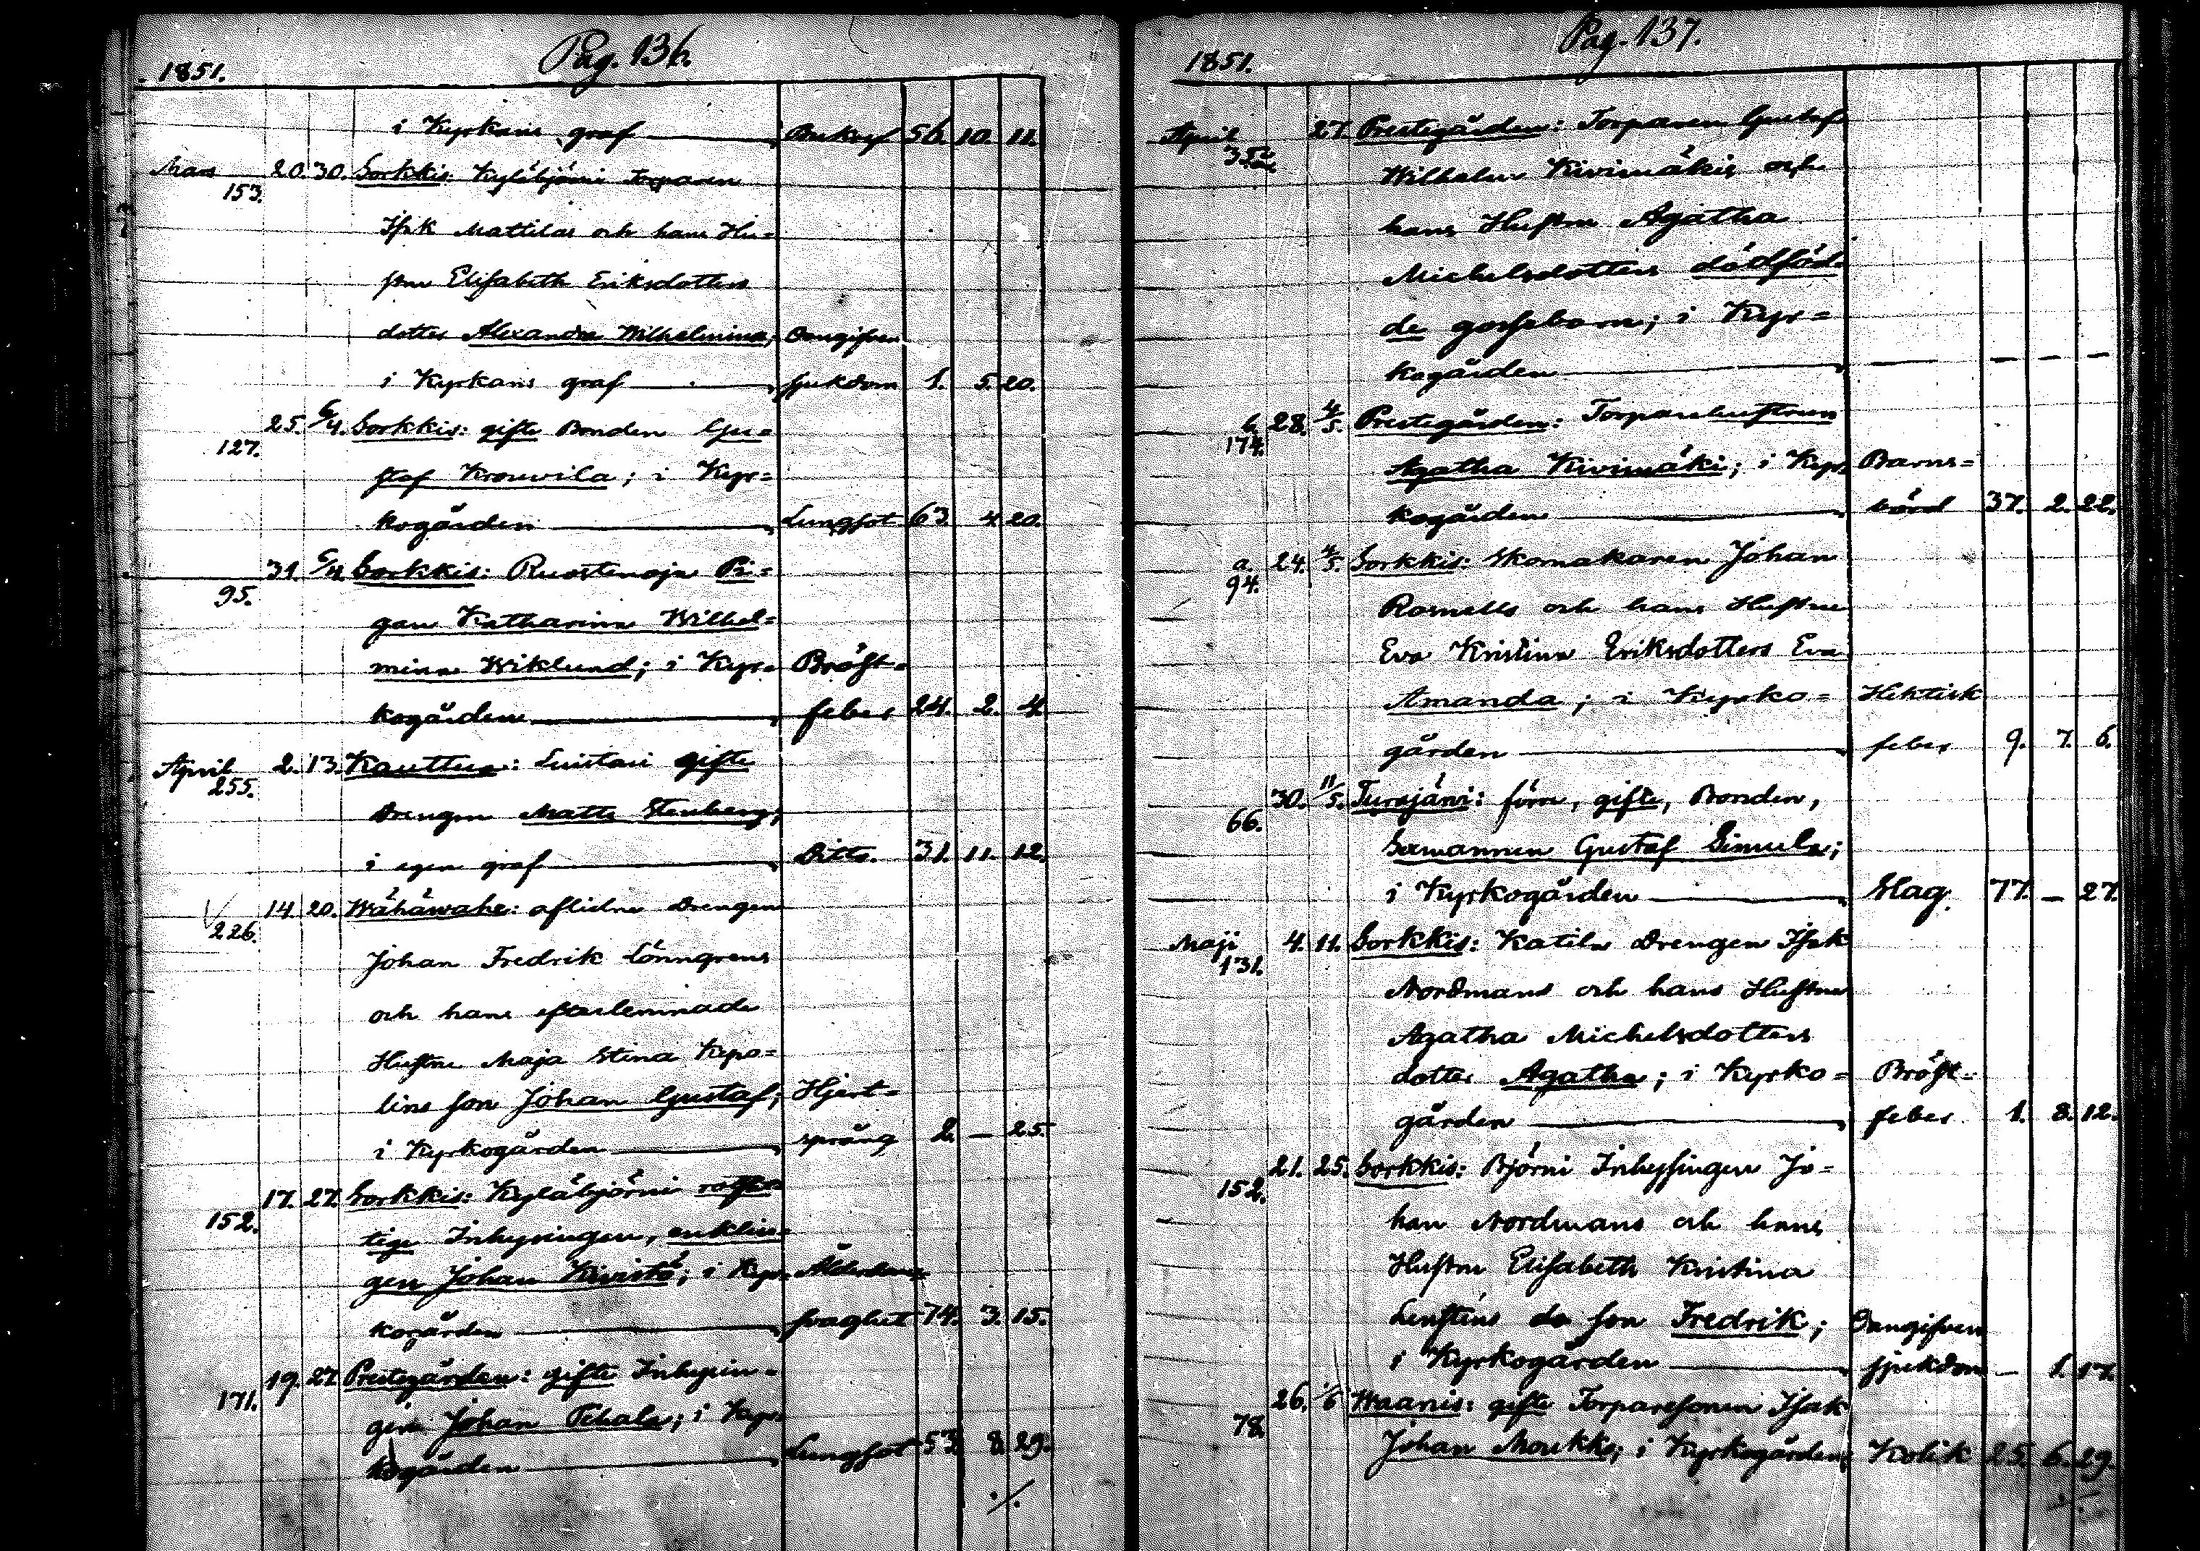 Pag. 136.
1851.
i Kyrkans graf 56. 10. 11.
Mars 20. 30. Sorkkis: Kyläbjörni Torparen
153.
Isak Mattilas och hans Hu=
stru Elisabeth Eriksdotters
dotter Alexandra Wilhelmina; Oangifven
i Kyrkans graf sjukdom 1. 5. 20.
25. 6/4. Sorkkis: gifte Bonden Gu=
127.
staf Krouvila; i Kyr=
kogården Lungsot 63. 4 20.
31 6/4 Sorkkis: Ruostenoja Pi=
95.
gan Katharina Wilhel=
mina Wiklund; i Kyr= Bröst=
kogården feber 24. 2. 4
April 2. 13. Kauttua: Luistari gifte
255.
Drengen Matts Stenberg;
i egen graf Ditto. 31. 11. 12.
14. 20. Wähäwahe: aflidne Drengen
226.
Johan Fredrik Lönngrens
och hans efterlemnade
Hustru Maja Stina Kepo=
lins son Johan Gustaf; Hjert=
i Kyrkogården språng 2. — 25.
17. 27. Sorkkis: Kyläbjörni rotfat=
152.
tige Inhysingen, enklin=
gen Johan Kivistö; i Kyr= Ålderdoms=
kogården svaghet 74. 3. 15.
19. 27. Prestegården: gifte Inhysin=
171.
gen Johan Tehala; i Kyr=
kogården Lungsot 53. 8. 29.
./.
Pag. 137.
1851.
April 27. Prestegården: Torparen Gustaf
Wilhelm Kivimäkis och
hans Hustru Agatha
Michelsdotters dödföd=
de gossebarn; i Kyr=
kogården — — — —
b. 28. 4/5. Prestegården: Torparehustrun
174.
Agatha Kivimäki; i Kyr= Barns=
kogården börd 37. 2. 22.
a. 24. 4/5. Sorkkis: Skomakaren Johan
94.
Rosnells och hans Hustru
Eva Kristina Eriksdotters Eva
Amanda; i Kyrko= Hektisk
gården feber 9. 7. 6.
30. 11/5. Turajärvi: förre, gifte, Bonden,
66.
Sexmannen Gustaf Simula;
i Kyrkogården Slag. 77. — 27.
Maji 4. 11. Sorkkis: Katila Drengen Isak
131.
Nordmans och hans Hustru
Agatha Michelsdotters
dotter Agatha; i Kyrko= Bröst=
gården feber 1. 8. 12.
21. 25. Sorkkis: Björni Inhyssingen Jo=
152.
han Nordmans och hans
Hustru Elisabeth Kristina
Lenstens do son Fredrik; Oangifven
i Kyrkogården sjukdom — 1. 17.
26. 1/6 Waanis: gifte Torparesonen Isak
78.
Johan Moukko; i Kyrkogården; Kolik 25. 6. 29.